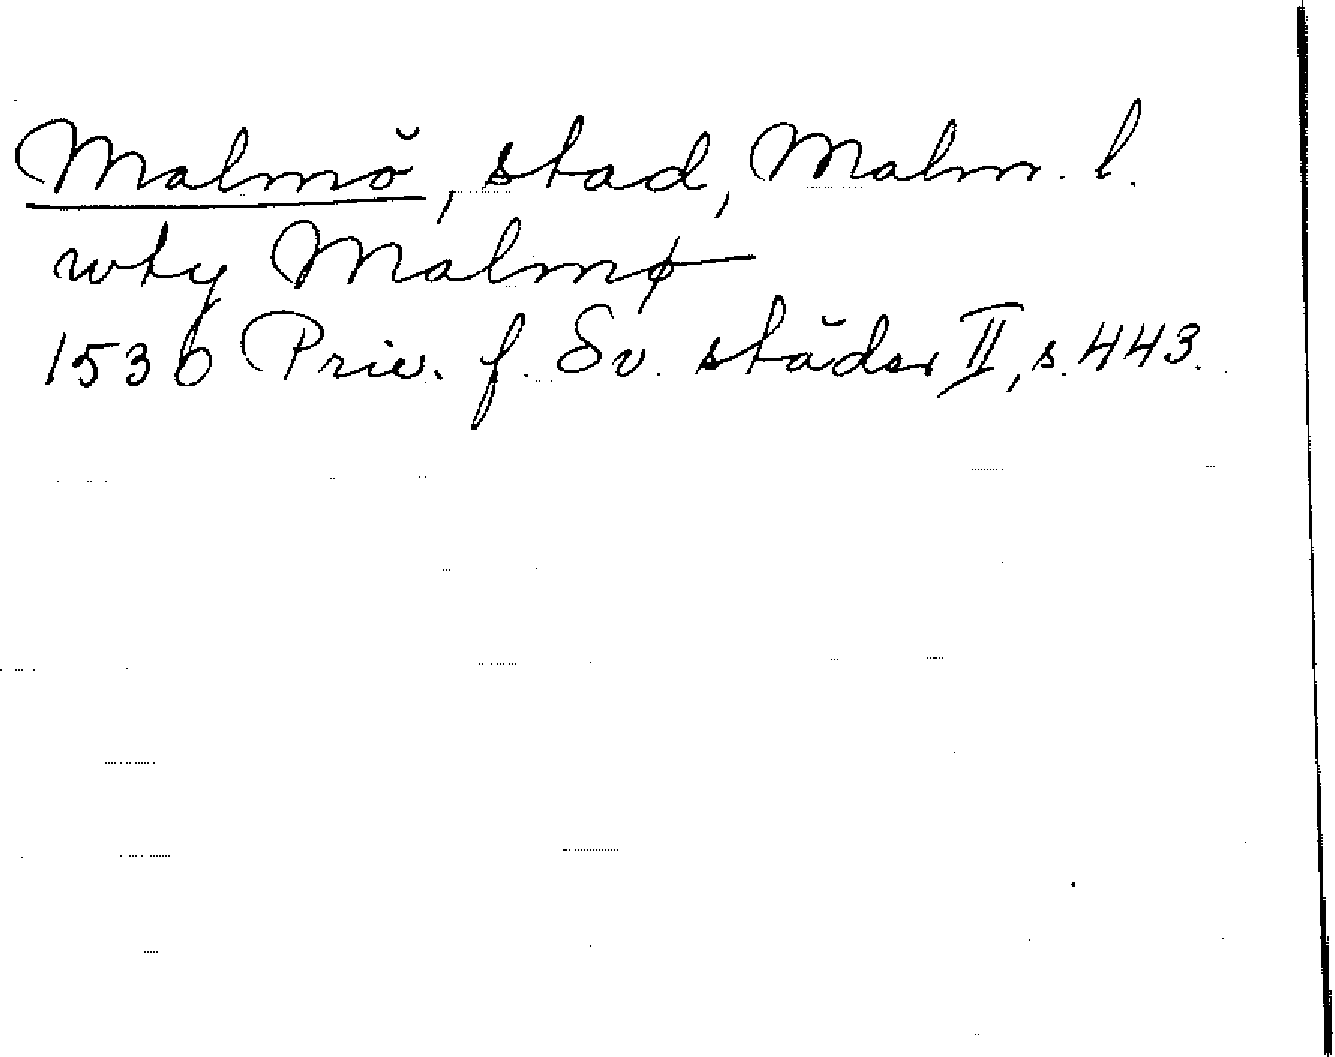 Malmö, stad, Malm. l.
wty Malmø
1536 Priv. f. Sv. städer II, s. 443.